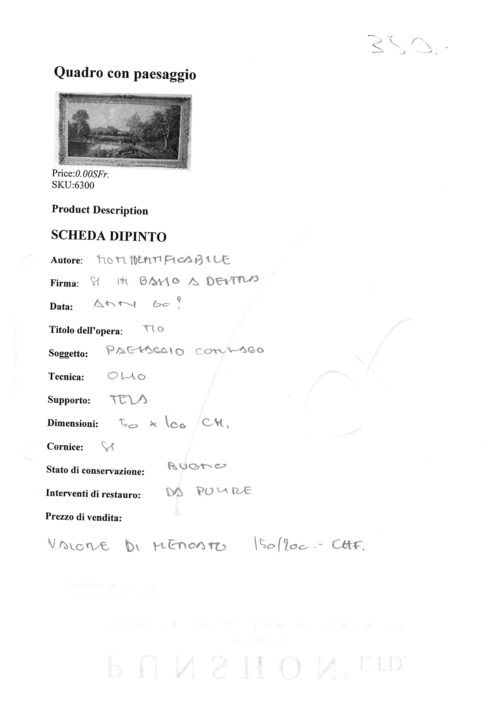 350.-
Quadro con paesaggio
Price:0.00SFr.
SKU:6300
Product Description
SCHEDA DIPINTO
Autore: NON IDENTIFICABILE
Firma: SI IN BASSO A DESTRA
Data: ANNI 60?
Titolo dell'opera: NO
Soggetto: PAESAGGIO CON LAGO
Tecnica: OLIO
Supporto: TELA
Dimensioni: 50 x 100 CM.
Cornice: SI
Stato di conservazione: BUONO
Interventi di restauro: DA PULIRE
Prezzo di vendita:
VALORE DI MERCATO 150/200.- CHF.
PUNSHON, LTD.